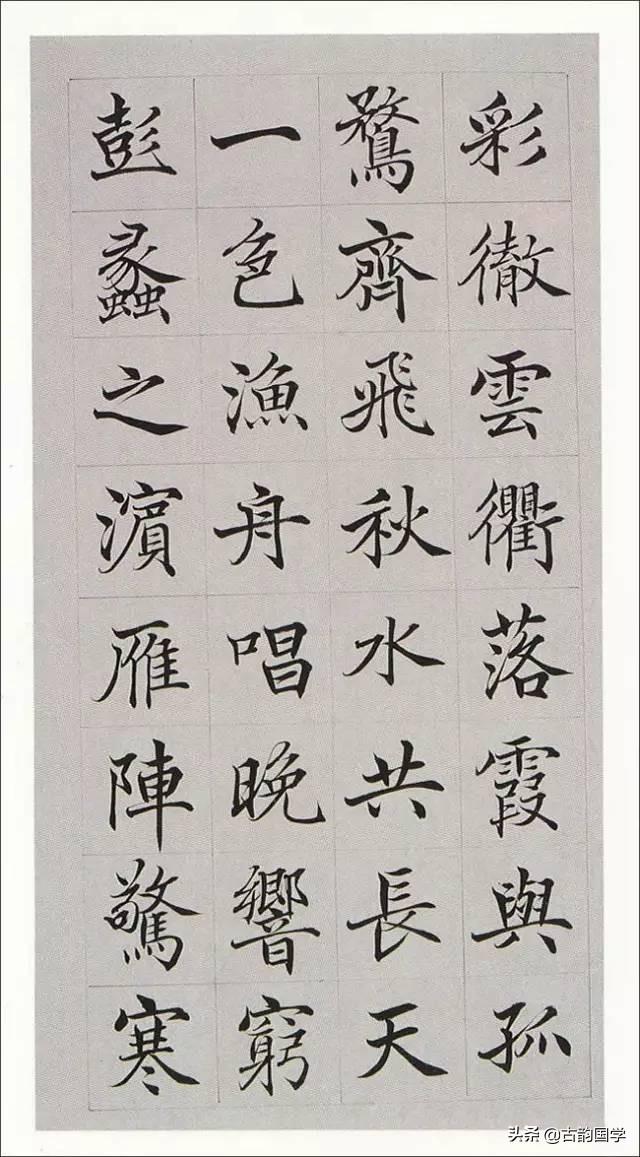 彩徹雲衢落霞與孤
鶩齊飛秋水共長天
一色漁舟唱晚響窮
彭蠡之濵雁陣驚寒
头条 @古韵国学